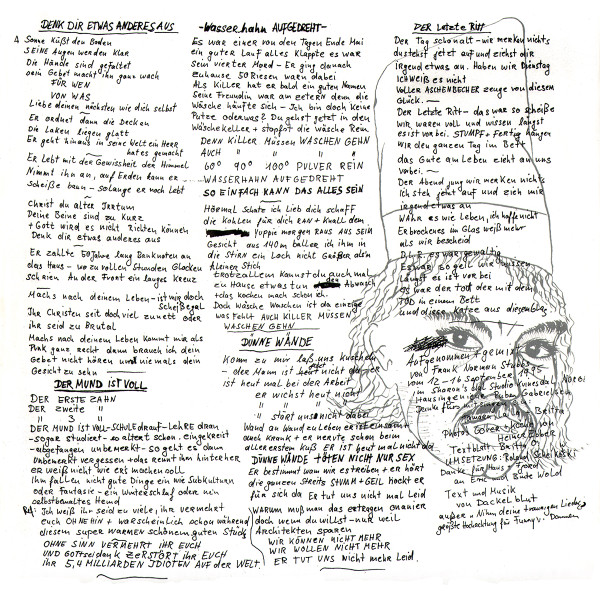 DENK DIR ETWAS ANDERES AUS
Sonne küßt den Boden
SEINE Augen werden klar
Die Hände sind gefaltet
sein Gebet macht ihn ganz wach
FÜR WEN
VON WAS
Liebe deinen nächsten wie dich selbst
Er ordnet dann die Decken
Die Laken liegen glatt
Er geht hinaus in seine Welt ein HERR
hat es gemacht
Er Lebt mit der Gewissheit der Himmel
Nimmt ihn an, auf Erden kann er
Scheiße baun - solange er noch Lebt
Christ du alter Irrtum
Deine Beine sind zu Kurz
+ Gott wird es nicht richten können
Denk dir etwas anderes aus
Er zahlte 50 Jahre lang Banknoten an
das Haus - wo zu vollen Stunden Glocken
schrein An der Front ein langes Kreuz
Machs nach deinem Leben - ist mir doch
Scheißegal
Ihr Christen seit doch viel zu nett oder
ihr seid zu Brutal
Machs nach deinem Leben Kommt mir als
Punk ganz recht dann brauch ich dein
Gebet nicht hören und nie mals dein
Gesicht zu sehn
DER MUND IST VOLL
DER ERSTE ZAHN
DER zweite "
" 3 "
DER MUND IST VOLL - SCHULE drauf - LEHRE dran
- sogar studiert - so altert schon. Eingekreist
- abgefangen unbemerkt - so geht es dann
unbemerkt vergessen + das recht am hinterher
er weiß nicht wie er's machen soll
Ihm fallen nicht gute Dinge ein wie Subkultur
oder Fantasie - ein Winterschlaf oder nein
selbstbemaltes Hemd
Rf: Ich weiß ihr seid zu viele, ihr vermehrt
euch OHNEHIN + warscheinlich schon während
diesem super warmen schönem guten Stück
OHNE SINN VERMEHRT IHR EUCH
UND Gottseidank ZERSTÖRT IHR EUCH
ihr 5,4 MILLIARDEN IDIOTEN AUF DER WELT.
- Wasserhahn AUFGEDREHT -
Es war einer von den Tagen Ende Mai
ein guter Lauf alles Klappte es war
Sein vierter Mord - Er ging danach
zuhause 50 Riesen warn dabei
Als Killer hat er bald ein guten Namen
Seine Freundin war am zetern denn die
Wäsche häufte sich - Ich bin doch keine
Putze oder was? Du gehst jetzt in den
Wäschekeller + stopfst die wäsche Rein
DENN KILLER MÜSSEN WASCHEN GEHN
AUCH " " "
60° 90° 100° PULVER REIN
WASSERHAHN AUFGEDREHT
SO EINFACH KANN DAS ALLES SEIN
Hörmal Schatz ich Lieb dich schaff
die Kohlen für dich RAN + Knall dem
Yuppie morgen RAUS AUS SEIN
Gesicht aus 140m baller ich ihm in
die STIRN ein Loch nicht Größer als'n
kleinen Stich
Trotz allem Kannst du auch mal
ein Hause etwas tun Abwasch
+ das kochen mach schon ich.
Doch Wäsche waschen ist da einzige
was fehlt AUCH KILLER MÜSSEN
WASCHEN GEHN
DÜNNE WÄNDE
Komm zu mir laß uns kuscheln
- der Mann ist heut nicht da er
ist heut mal bei der Arbeit
er wichst heut nicht
" " "
" stört uns nicht dabei
Wand an Wand zu Leben er ist einsam +
auch Krank + er nervte schon beim
allerersten Kuß ER IST heut mal nicht da
DÜNNE WÄNDE TÖTEN NICHT NUR SEX
Er bestimmt wann wir es treiben + er hört
die ganzen Streits STUMM + GEIL Hockt er
für sich da Er tut uns nicht mal Leid
Warum muß man das ertragen
doch wenn du willst - nur weil
Architekten sparen
WIR KÖNNEN NICHT MEHR
WIR WOLLEN NICHT MEHR
ER TUT UNS NICHT mehr Leid.
DER Letzte Ritt
Der Tag schon alt - wir merken nichts
du stehst jetzt auf und ziehst dir
irgend etwas an. Haben wir Dienstag
Ich WEIß es nicht
VOLLER ASCHENBECHER zeuge von diesem
Glück. -
Der Letzte Ritt - das war so scheiße
wir waren voll und wissen längst
es ist vorbei. STUMPF + Fertig hängen
wir den ganzen Tag im Bett
das Gute am Leben zieht an uns
vorbei. -
Der Abend jung wir merken nichts
Ich steh jetzt auf und zieh mir
irgend etwas an
Wann es wie Leben, ich hoffe nicht
Erbrochenes im Glas weiß mehr
als wir bescheid
D.h.R. es war gewaltig
Es war so geil wir wussen
längst es ist vorbei
es war der TOD der mit dem
TOD in einem Bett
und diese Katze aus diesen
Aufgenommen + gemixt
von Frank Norman Stubbs
vom 12 - 16 September 1995
im Sharon's dial Studio
Hausingenieur Ruben Gabrielsen
Britta
Photos Cover
Heiner Ebber
Textblatt Britta D.
UMSETZUNG: Roland
Danke für Haus + Grund
an Eric und Bünte Wold
Text und Musik
von Dackelblut
außer "Nimm deine traurigen Lieder"
größte Hochachtung für Tommy's